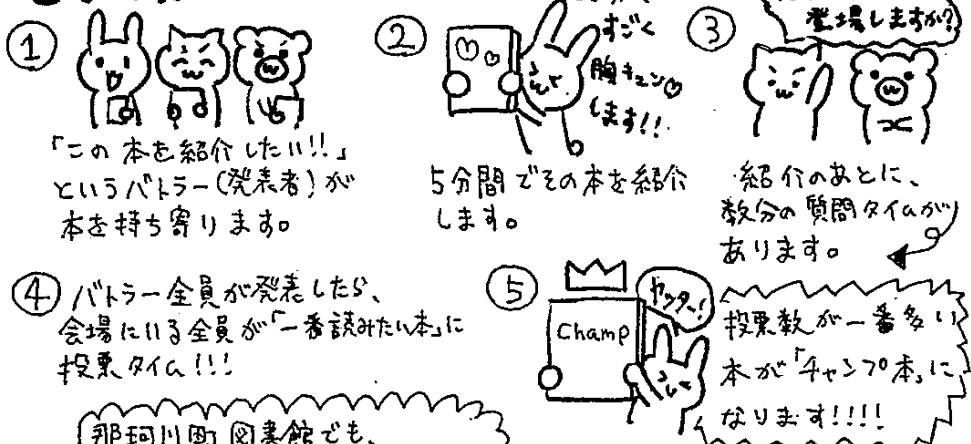 ①
「この本を紹介したい!!」
というバトラー(発表者)が
本を持ち寄ります。
②
すごく
胸キュン♡
します!!
5分間でその本を紹介
します。
③
登場しますか?
紹介のあとに、
数分の質問タイムが
あります。
④バトラー全員が発表したら、
会場にいる全員が「一番読みたい本」に
投票タイム!!!
⑤
Champ
ヤッター!
投票数が一番多い
本が「チャンプ本」に
なります!!!!
那珂川町図書館でも、